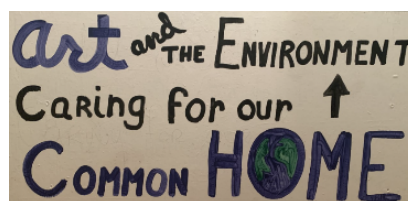 art and THE ENVIRONMENT
CARING for our
COMMON HOME